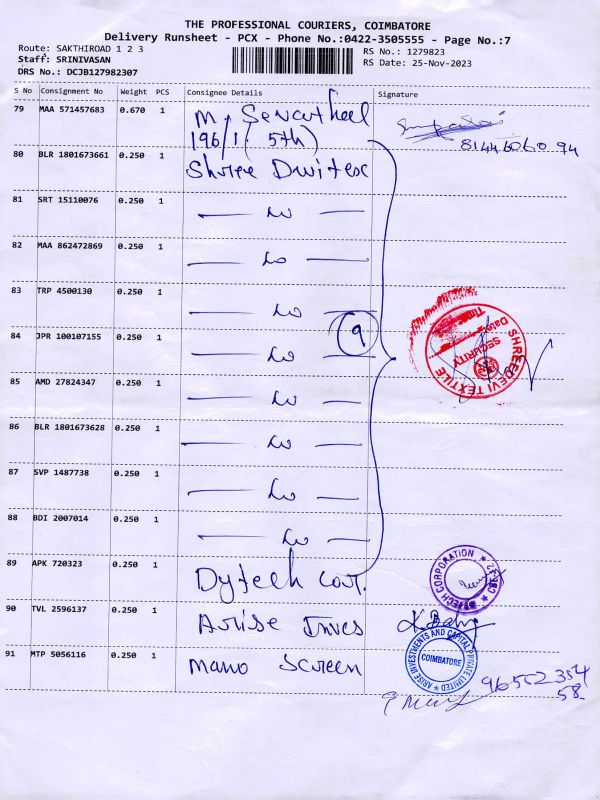 THE PROFESSIONAL COURIERS, COIMBATORE
Delivery Runsheet - PCX - Phone No.:0422-3505555 - Page No.:7
Route: SAKTHIROAD 1 2 3
RS No.: 1279823
Staff: SRINIVASAN
RS Date: 25-Nov-2023
DRS No.: DCJB127982307
S No Consignment No Weight PCS Consignee Details Signature
79 MAA 571457683 0.670 1 M.
196/1 (5th)
8144606094
80 BLR 1801673661 0.250 1 Shree
81 SRT 15110076 0.250 1
82 MAA 862472869 0.250 1
83 TRP 4500130 0.250 1
9
84 JPR 100107155 0.250 1
SHREEDEVI TEXTILE
SECURITY
Date
Time
85 AMD 27824347 0.250 1
86 BLR 1801673628 0.250 1
87 SVP 1487738 0.250 1
88 BDI 2007014 0.250 1
89 APK 720323 0.250 1 Dytech
CORPORATION
90 TVL 2596137 0.250 1 Arise Inves
ARISE INVESTMENTS AND CAPITAL PRIVATE LIMITED
COIMBATORE
91 MTP 5056116 0.250 1 Mano Screen
96552 354
58